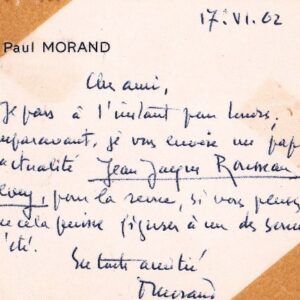 17. VI. 62
Paul MORAND
Cher ami,
Je pars à l'instant pour
auparavant, je vous envoie un pap
actualité Jean Jacques Rousseau
pour la revue, si vous pensez
que cela puisse figurer à un des
été.
En toute amitié
Morand